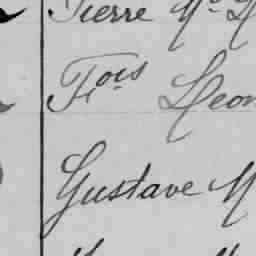 Pierre Mce
Fois Leon
Gustave M